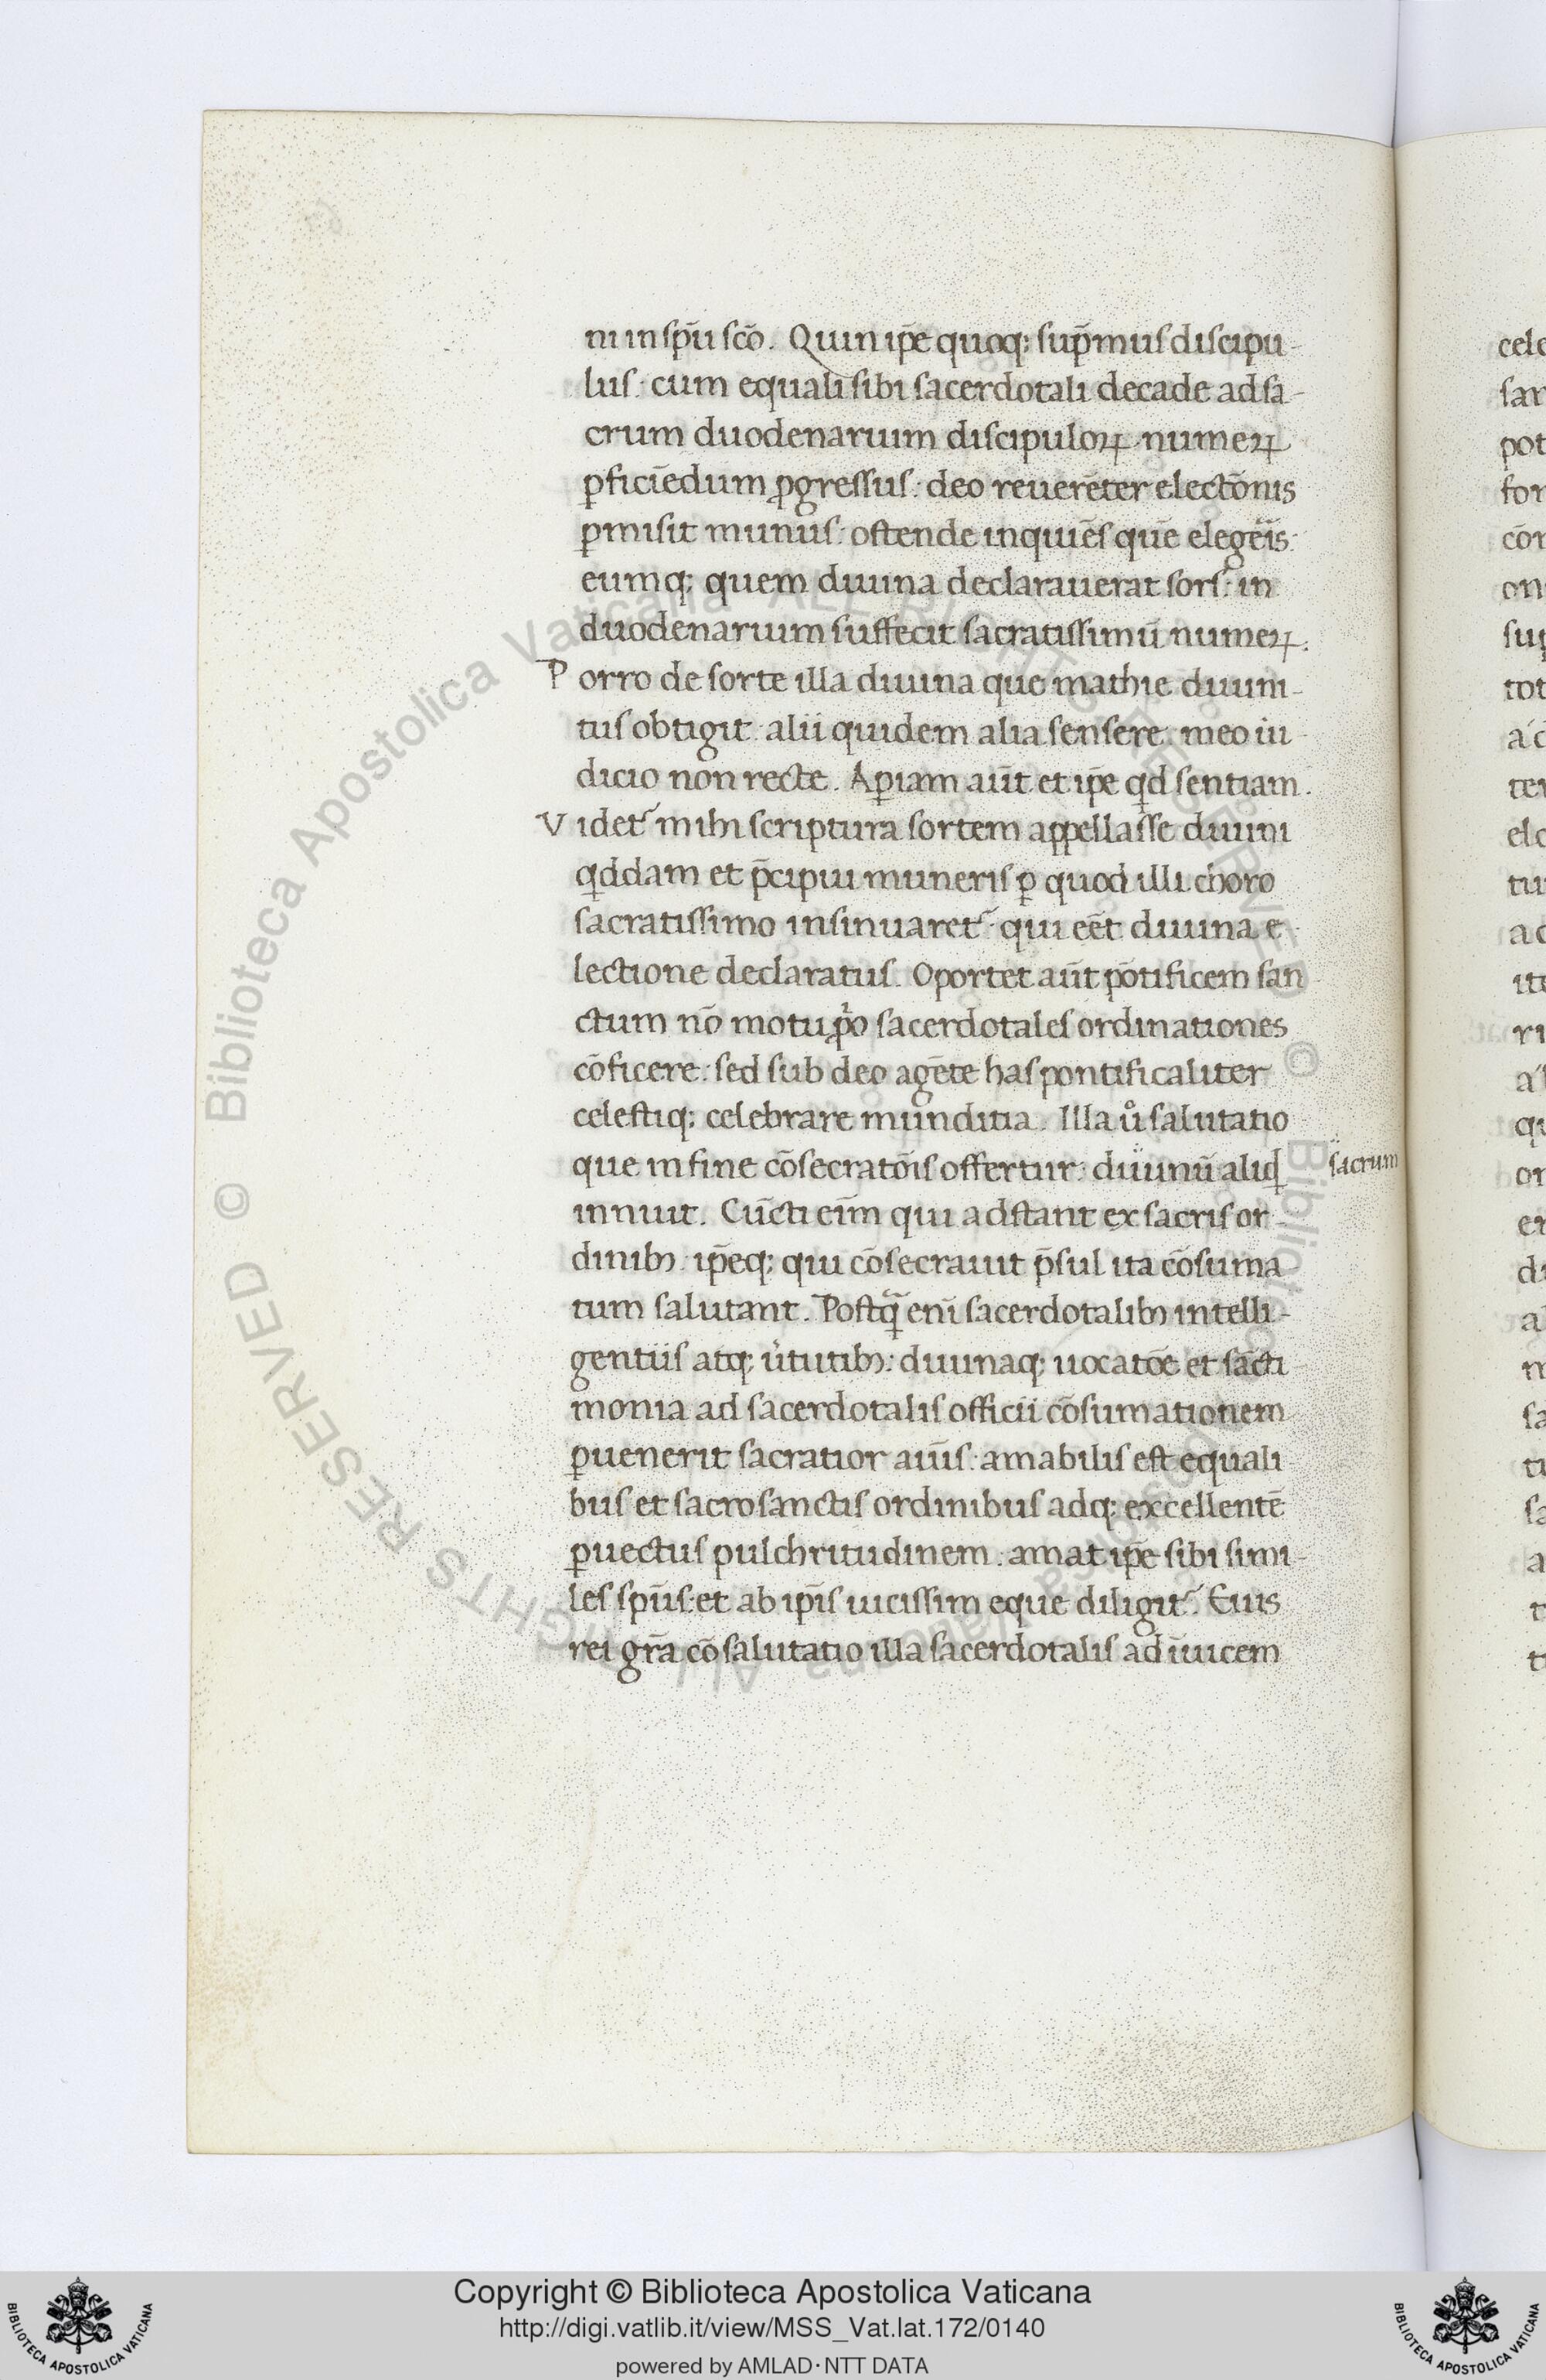 ni in sp̄u sc̄o. Quin ip̄e quoq; sup̄mus discipu-
lus: cum equali sibi sacerdotali decade ad sa-
crum duodenarium discipuloꝝ numeꝝ
ꝑficiēdum ꝓgressus: deo reuerēter electōnis
ꝑmisit munus: ostende inquiēs quē elegeris:
eumq; quem diuina declarauerat sors: in
duodenarium suffecit sacratissimū numeꝝ.
Porro de sorte illa diuina que mathie diuini-
tus obtigit: alii quidem alia sensere: meo iu-
dicio non recte. Aꝑiam aūt et ip̄e qd sentiam.
Videt᷑ mihi scriptura sortem appellasse diuini
qddam et p̄cipui muneris ꝑ quod illi choro
sacratissimo insinuaret᷑: qui eēt diuina e-
lectione declaratus. Oportet aūt pōtificem san
ctum nō motu ꝓ̍o sacerdotales ordinationes
cōficere: sed sub deo agēte has pontificaliter
celestiq; celebrare munditia. Illa ů salutatio
que in fine cōsecratōis offertur: diuinū aliqd
sacrum
innuit. Cūcti eīm qui adstant ex sacris or-
dinibꝫ: ip̄eq; qui cōsecrauit p̄sul ita cōsuma
tum salutant. Postqᷓ enī sacerdotalibꝫ intelli-
gentiis atq; u̍tutibꝫ: diuinaq; uocatōe et sācti
monia ad sacerdotalis officii cōsumationem
ꝑuenerit sacratior aīus: amabilis est equali
bus et sacrosanctis ordinibus adq; excellentē
ꝑuectus pulchritudinem: amat ip̄e sibi simi-
les sp̄us: et ab ip̄is uicissim eque diligit᷑. Eius
rei gr̄a cōsalutatio illa sacerdotalis ad īuicem
Copyright © Biblioteca Apostolica Vaticana
http://digi.vatlib.it/view/MSS_Vat.lat.172/0140
powered by AMLAD·NTT DATA